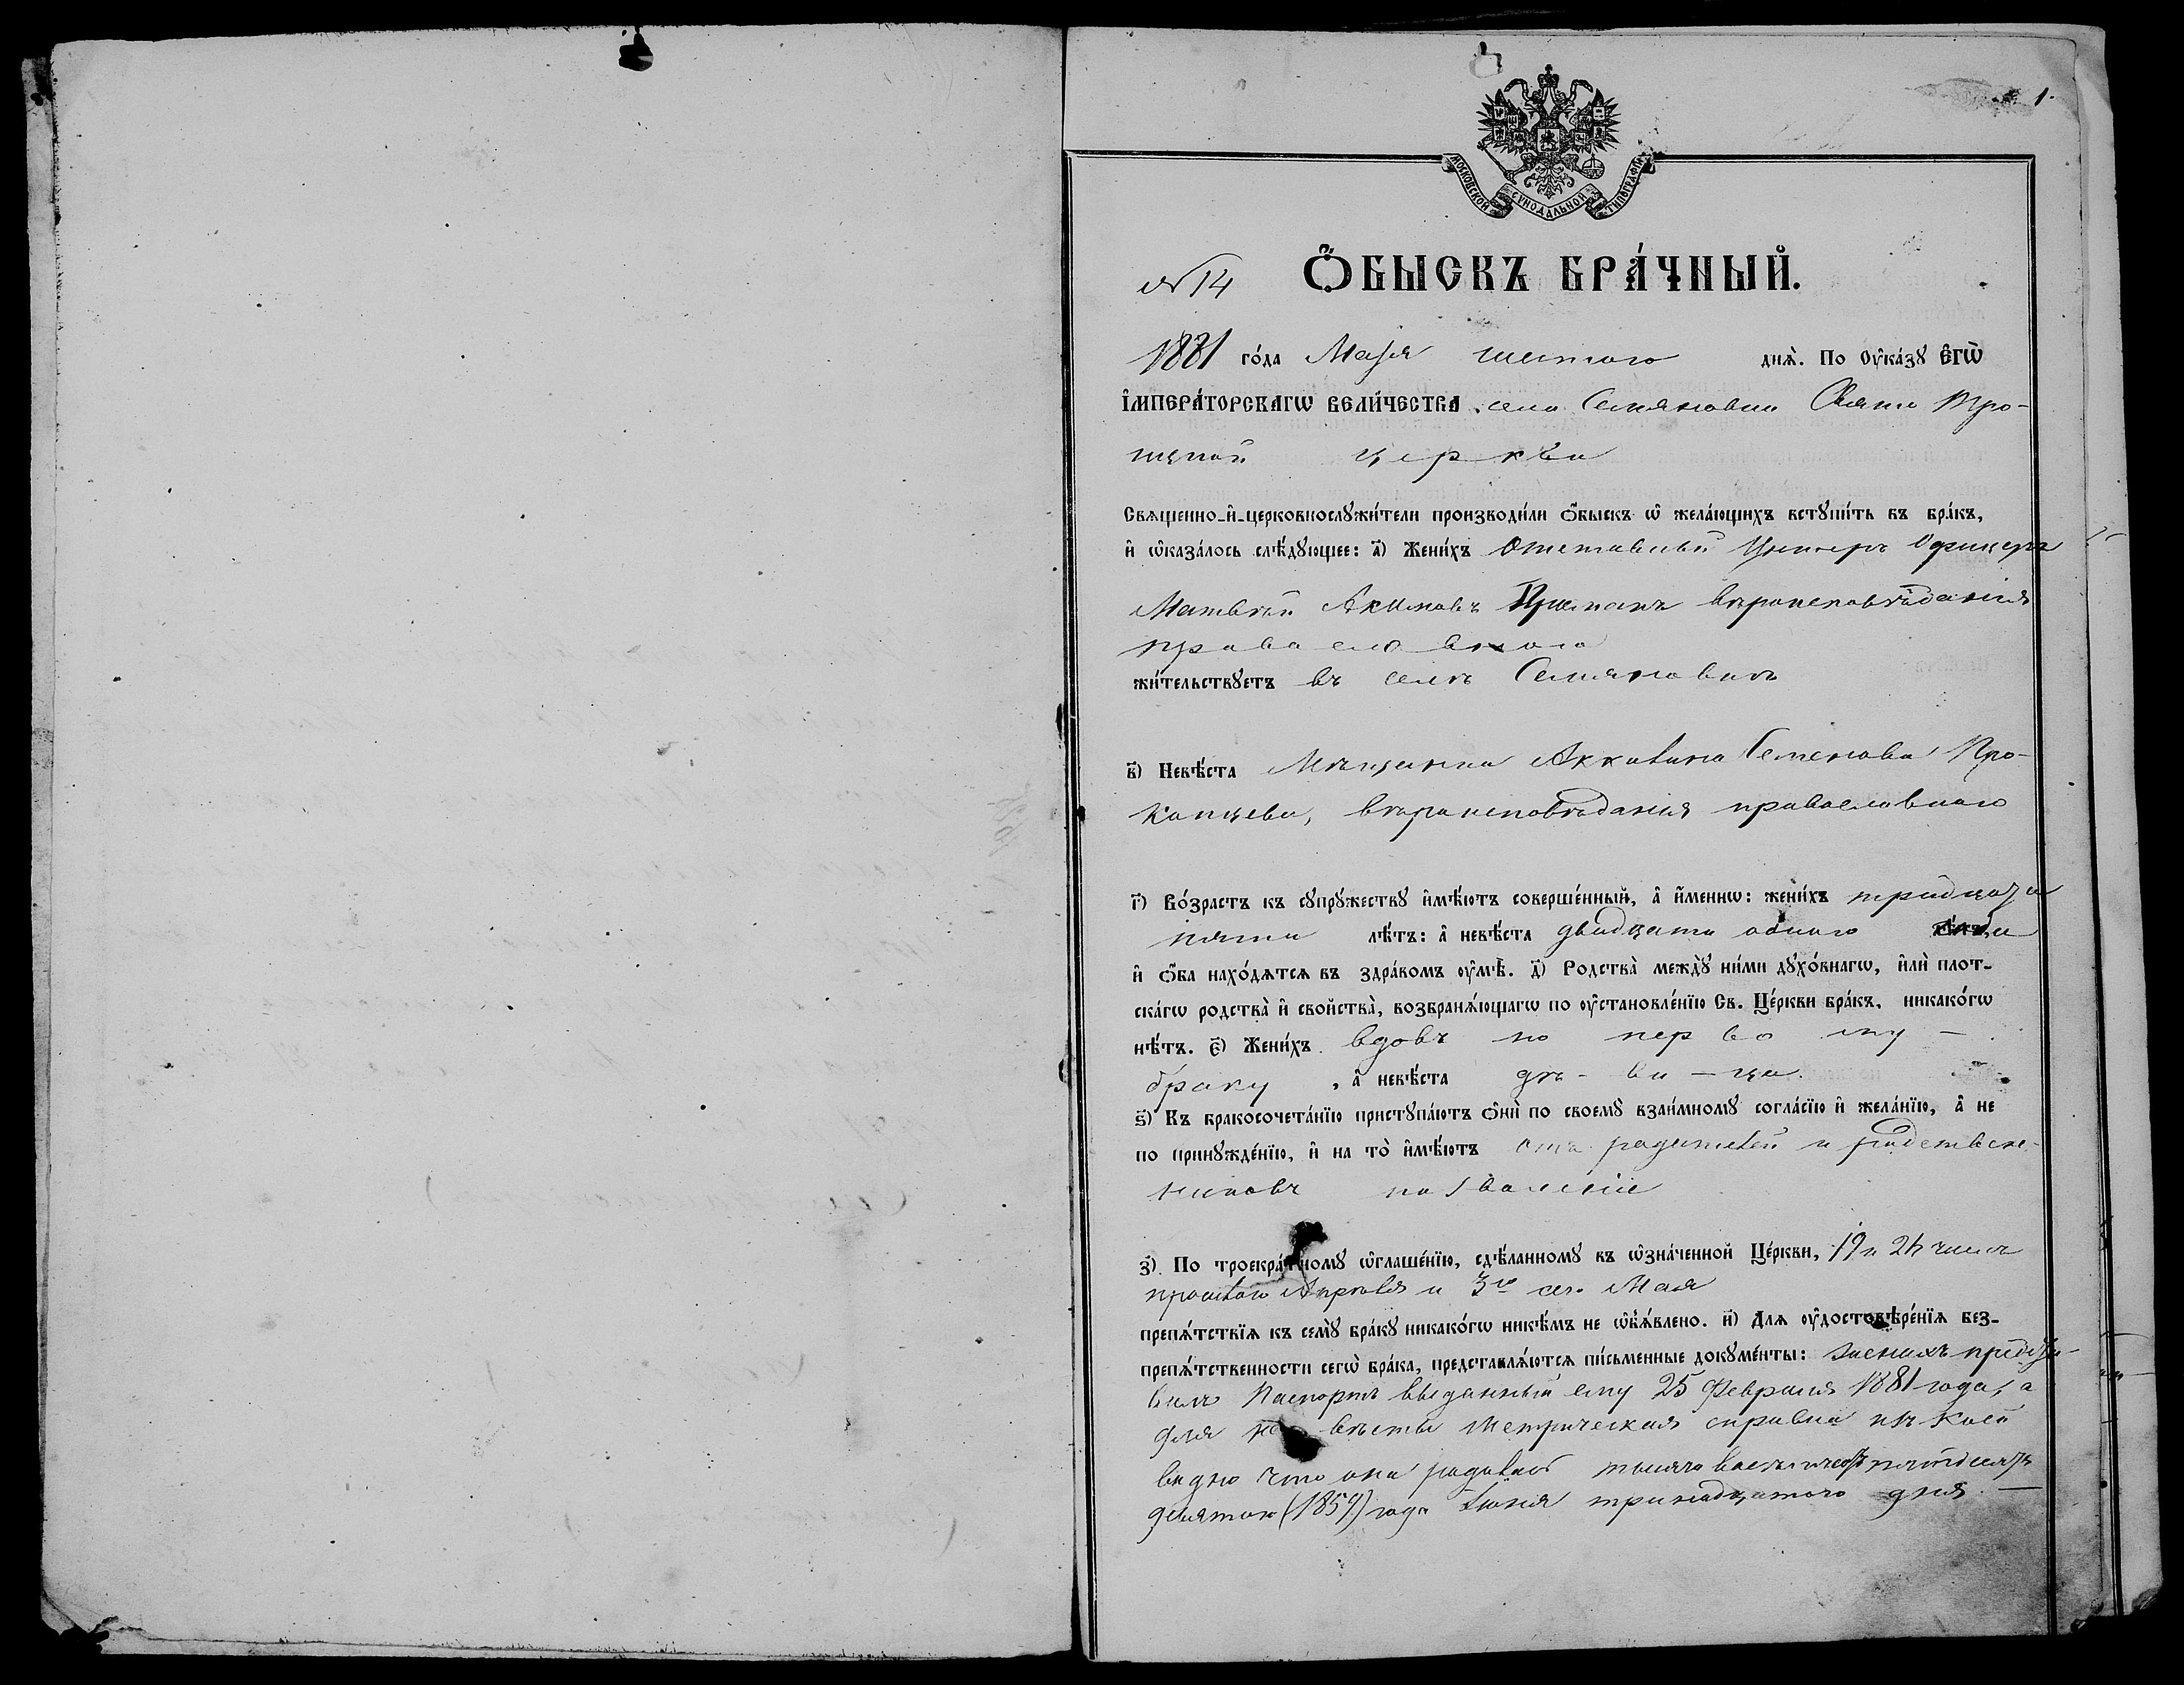 1.
МОСКОВСКОЙ СѴНОДАЛЬНОЙ ТИПОГРАФІИ
№ 14 ОБЫСКЪ БРА́ЧНЫЙ.
1881 го́да Маія шестого днѧ̀. По Оу҆ка́зꙋ Є҆гѡ̀
І҆мпера́торскагѡ вели́чества села Семяновки Свято Тро-
ицкой церкви
Свѧщенно-и҆-церковнослꙋжи́тели производи́ли ѻ҆́быскъ ѡ҆ жела́ющихъ встꙋпи́ть въ бра́къ,
и҆ ѡ҆каза́лось слѣ́дꙋющее: а҃) Жени́хъ Отставный Унтеръ Офицеръ
Матвѣй Акимовъ вѣроисповѣданія
православного
жи́тельствꙋетъ въ селѣ Семяновкѣ
в҃) Невѣ́ста Мѣщанка Акилина Семенова Про-
копцева, вѣроисповѣданія православного
г҃) Во́зрастъ къ сꙋпрꙋ́жествꙋ и҆мѣ́ютъ соверше́нный, а҆ и҆́меннѡ: жени́хъ тридцати
пяти лѣ́тъ: а҆ невѣ́ста двадцати одного года
и҆ ѻ҆́ба нахо́дѧтсѧ въ здра́вомъ оу҆мѣ̀. д҃) Родства̀ междꙋ̀ ни́ми дꙋхо́внагѡ, и҆лѝ плот-
ска́гѡ родства̀ и҆ свойства̀, возбранѧ́ющагѡ по оу҆становле́нїю Св. Це́ркви бра́къ, никако́гѡ
нѣ́тъ. є҃) Жени́хъ вдовъ по первому -
браку , а҆ невѣ́ста дѣ-ви-ца.
ѕ҃) Къ бракосочета́нїю пристꙋпа́ютъ ѻ҆нѝ по своемꙋ̀ взаи́мномꙋ согла́сїю и҆ жела́нїю, а҆ не
по принꙋжде́нїю, и҆ на то̀ и҆мѣ́ютъ отъ родителей и родствен-
никовъ позволеніе
з҃) По троекра́тномꙋ ѡ҆глаше́нїю, сдѣ́ланномꙋ въ ѡ҆зна́ченной Це́ркви, 19 и 26 чиселъ
прошлого Апрѣля и 3го сего Мая
препѧ́тствїѧ къ семꙋ̀ бра́кꙋ никако́гѡ никѣ́мъ не ѡ҆б̾ѧ́влено. и҃) Для оу҆достовѣре́нїѧ без-
препѧ́тственности сегѡ̀ бра́ка, представлѧ́ютсѧ пи́сьменные докꙋме́нты: женихъ предъя-
вилъ Паспортъ выданный ему 25 Февраля 1881 года, а
для не вѣсты метрическая справка изъ коей
видно что она родилась тысяча восемьсотъ пятдесятъ
девятого (1859) года Іюня тринадцатого дня. —